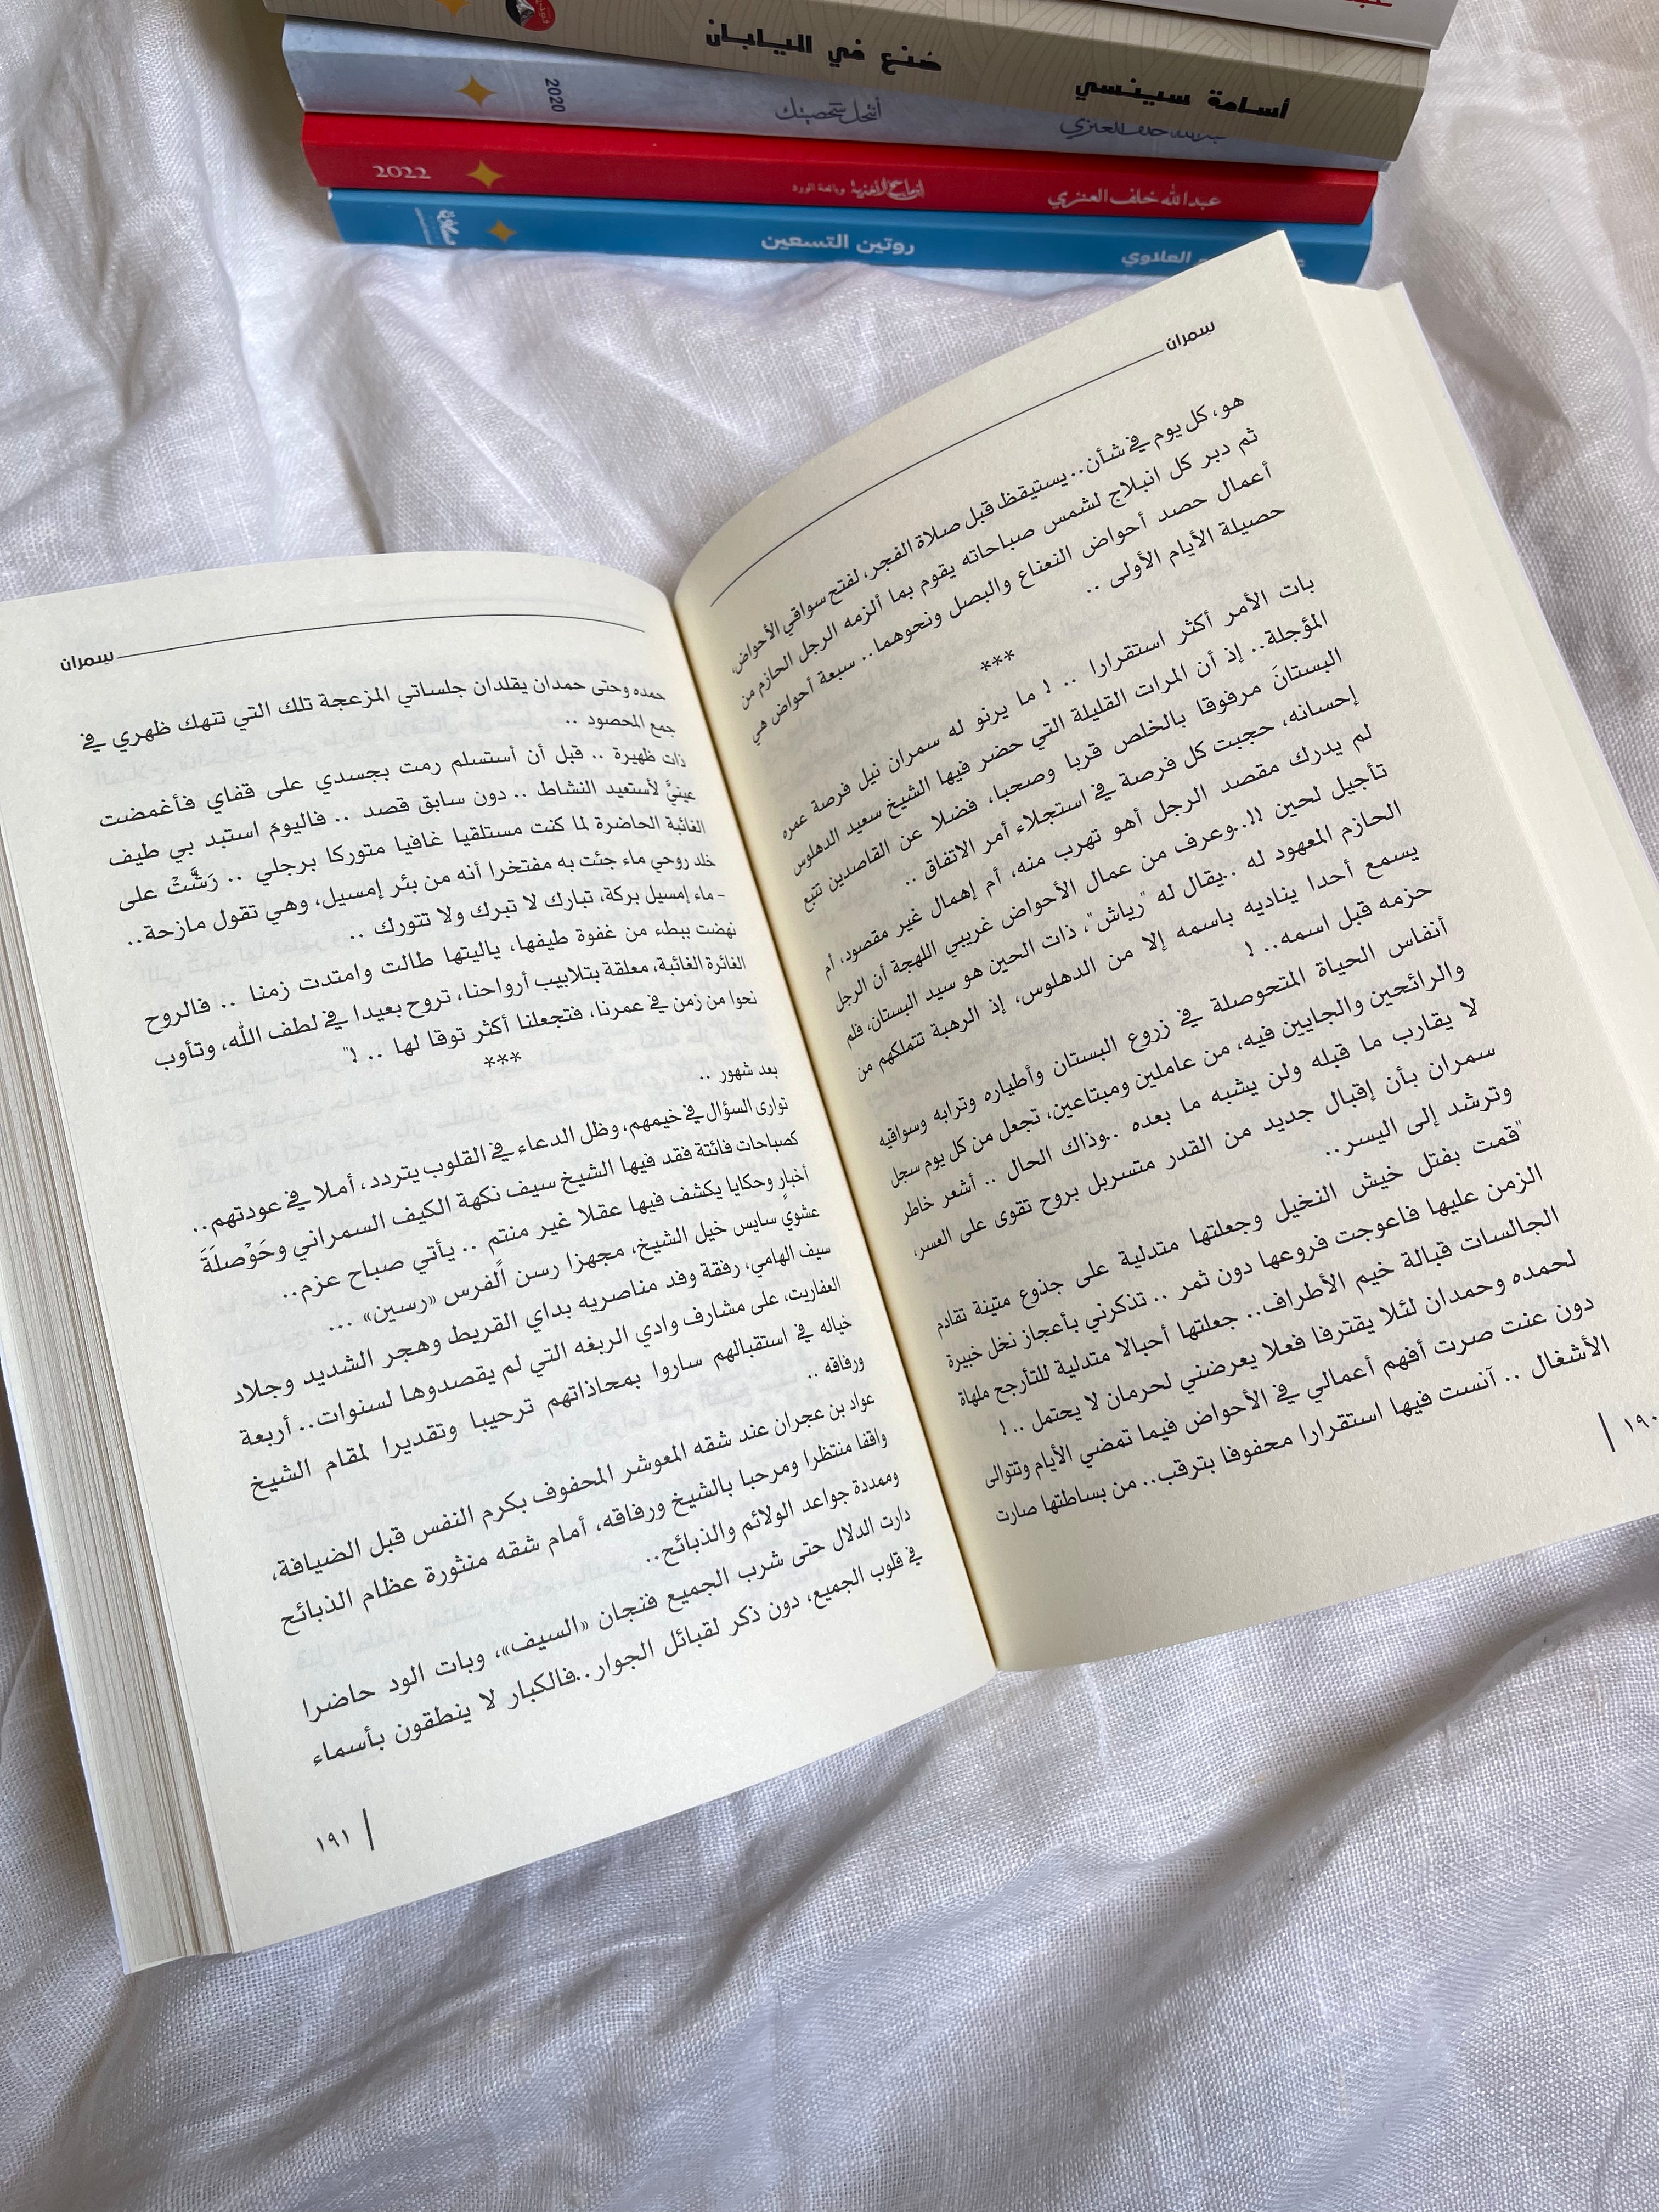 صُنع في اليابان
أسامة سينسي
2020
عبدالله خلف العنزي
2022
عبدالله خلف العنزي
روتين التسعين
العلاوي
سمران
هو، كل يوم في شأن.. يستيقظ قبل صلاة الفجر، لفتح سواقي الأحواض،
ثم دبر كل انبلاج لشمس صباحاته يقوم بما ألزمه الرجل الحازم من
أعمال حصد أحواض النعناع والبصل ونحوهما.. سبعة أحواض هي
حصيلة الأيام الأولى ..
***
بات الأمر أكثر استقرارا .. ! ما يرنو له سمران نيل فرصة عمره
المؤجلة.. إذ أن المرات القليلة التي حضر فيها الشيخ سعيد الدهلوس
البستانَ مرفوقا بالخلص قربا وصحبا، فضلا عن القاصدين تتبع
إحسانه، حجبت كل فرصة في استجلاء أمر الاتفاق ..
لم يدرك مقصد الرجل أهو تهرب منه، أم إهمال غير مقصود، أم
تأجيل لحين !!..وعرف من عمال الأحواض غريبي اللهجة أن الرجل
الحازم المعهود له ..يقال له "رياش"، ذات الحين هو سيد البستان، فلم
يسمع أحدا يناديه باسمه إلا من الدهلوس، إذ الرهبة تتملكهم من
حزمه قبل اسمه.. !
أنفاس الحياة المتحوصلة في زروع البستان وأطياره وترابه وسواقيه
والرائحين والجايين فيه، من عاملين ومبتاعين، تجعل من كل يوم سجل
لا يقارب ما قبله ولن يشبه ما بعده ..وذاك الحال .. أشعر خاطر
سمران بأن إقبال جديد من القدر متسربل بروح تقوى على العسر،
وترشد إلى اليسر..
"قمت بفتل خيش النخيل وجعلتها متدلية على جذوع متينة تقادم
الزمن عليها فاعوجت فروعها دون ثمر .. تذكرني بأعجاز نخل خبيرة
الجالسات قبالة خيم الأطراف.. جعلتها أحبالا متدلية للتأرجح ملهاة
لحمده وحمدان لئلا يقترفا فعلا يعرضني لحرمان لا يحتمل .. !
دون عنت صرت أفهم أعمالي في الأحواض فيما تمضي الأيام وتتوالى
الأشغال .. آنست فيها استقرارا محفوفا بترقب.. من بساطتها صارت
١٩٠
سمران
حمده وحتى حمدان يقلدان جلساتي المزعجة تلك التي تنهك ظهري في
جمع المحصود ..
ذات ظهيرة .. قبل أن أستسلم رمت بجسدي على قفاي فأغمضت
عينيَّ لأستعيد النشاط .. دون سابق قصد .. فاليومَ استبد بي طيف
الغائبة الحاضرة لما كنت مستلقيا غافيا متوركا برجلي .. رَشَّتْ على
خلد روحي ماء جئت به مفتخرا أنه من بئر إمسيل، وهي تقول مازحة..
- ماء إمسيل بركة، تبارك لا تبرك ولا تتورك ..
نهضت ببطء من غفوة طيفها، ياليتها طالت وامتدت زمنا .. فالروح
الغائرة الغائبة، معلقة بتلابيب أرواحنا، تروح بعيدا في لطف الله، وتأوب
نحوا من زمن في عمرنا، فتجعلنا أكثر توقا لها .. !"
***
بعد شهور ..
توارى السؤال في خيمهم، وظل الدعاء في القلوب يتردد، أملا في عودتهم..
كصباحات فائتة فقد فيها الشيخ سيف نكهة الكيف السمراني وحَوْصلَةَ
أخبارٍ وحكايا يكشف فيها عقلا غير منتم .. يأتي صباح عزم..
عشوي سايس خيل الشيخ، مجهزا رسن الفرس «رسين» ...
سيف الهامي، رفقة وفد مناصريه بداي القريط وهجر الشديد وجلاد
العفاريت، على مشارف وادي الربغه التي لم يقصدوها لسنوات.. أربعة
خياله في استقبالهم ساروا بمحاذاتهم ترحيبا وتقديرا لمقام الشيخ
ورفاقه ..
عواد بن عجران عند شقه المعوشر المحفوف بكرم النفس قبل الضيافة،
واقفا منتظرا ومرحبا بالشيخ ورفاقه، أمام شقه منثورة عظام الذبائح
وممددة جواعد الولائم والذبائح..
دارت الدلال حتى شرب الجميع فنجان «السيف»، وبات الود حاضرا
في قلوب الجميع، دون ذكر لقبائل الجوار..فالكبار لا ينطقون بأسماء
١٩١